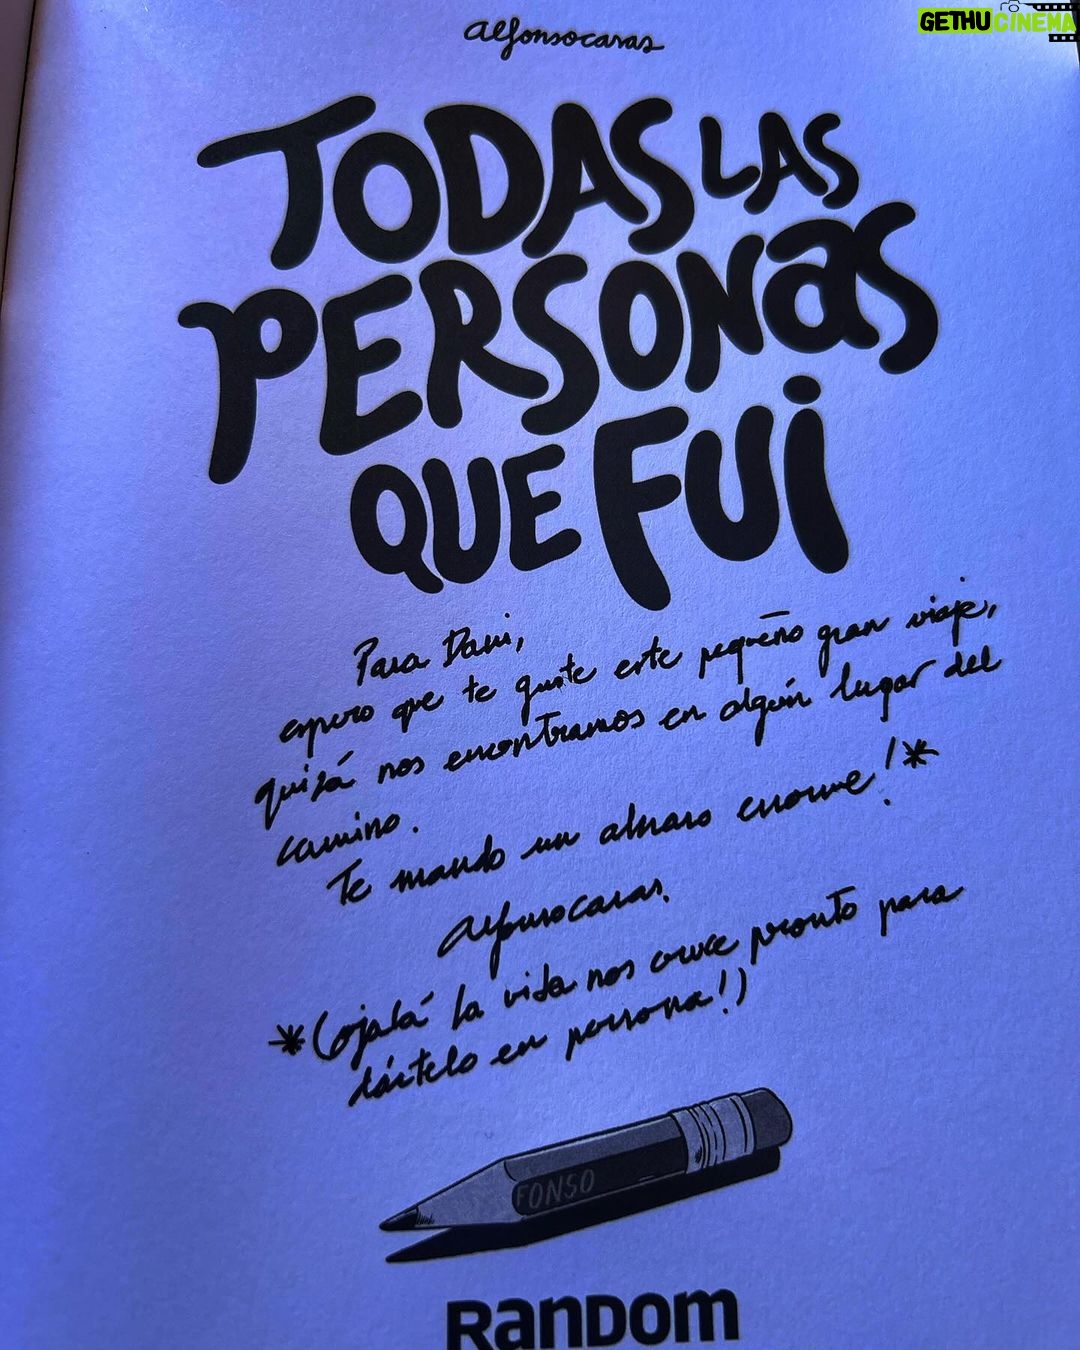 GETHUCINEMA
alfonsocasas
TODAS LAS
PERSONAS
QUE FUI
Para Dani,
espero que te guste este pequeño gran viaje,
quizá nos encontramos en algún lugar del
camino.
Te mando un abrazo enorme! *
alfonsocasas.
* (ojalá la vida nos cruce pronto para
dártelo en persona!)
FONSO
RANDOM